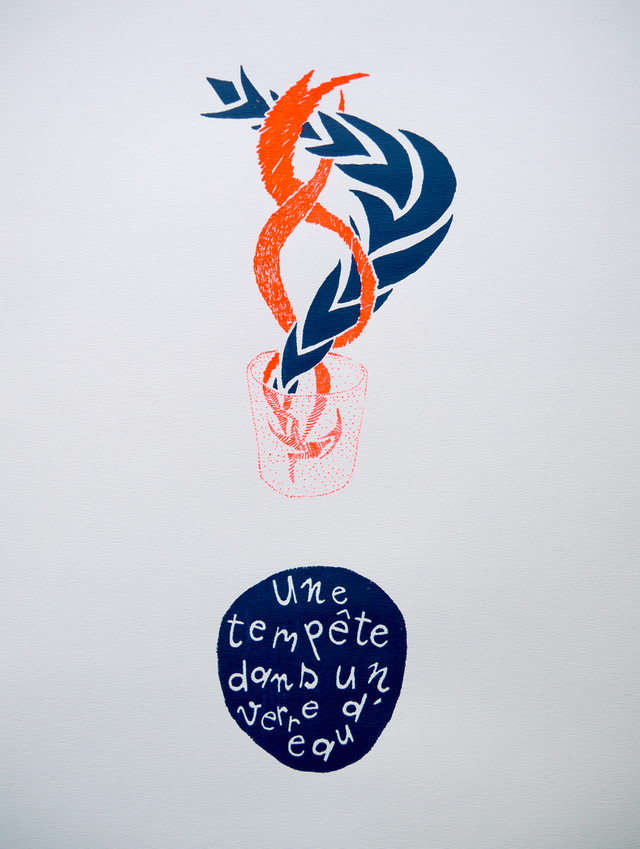 Une
tempête
dans un
verre d'
eau